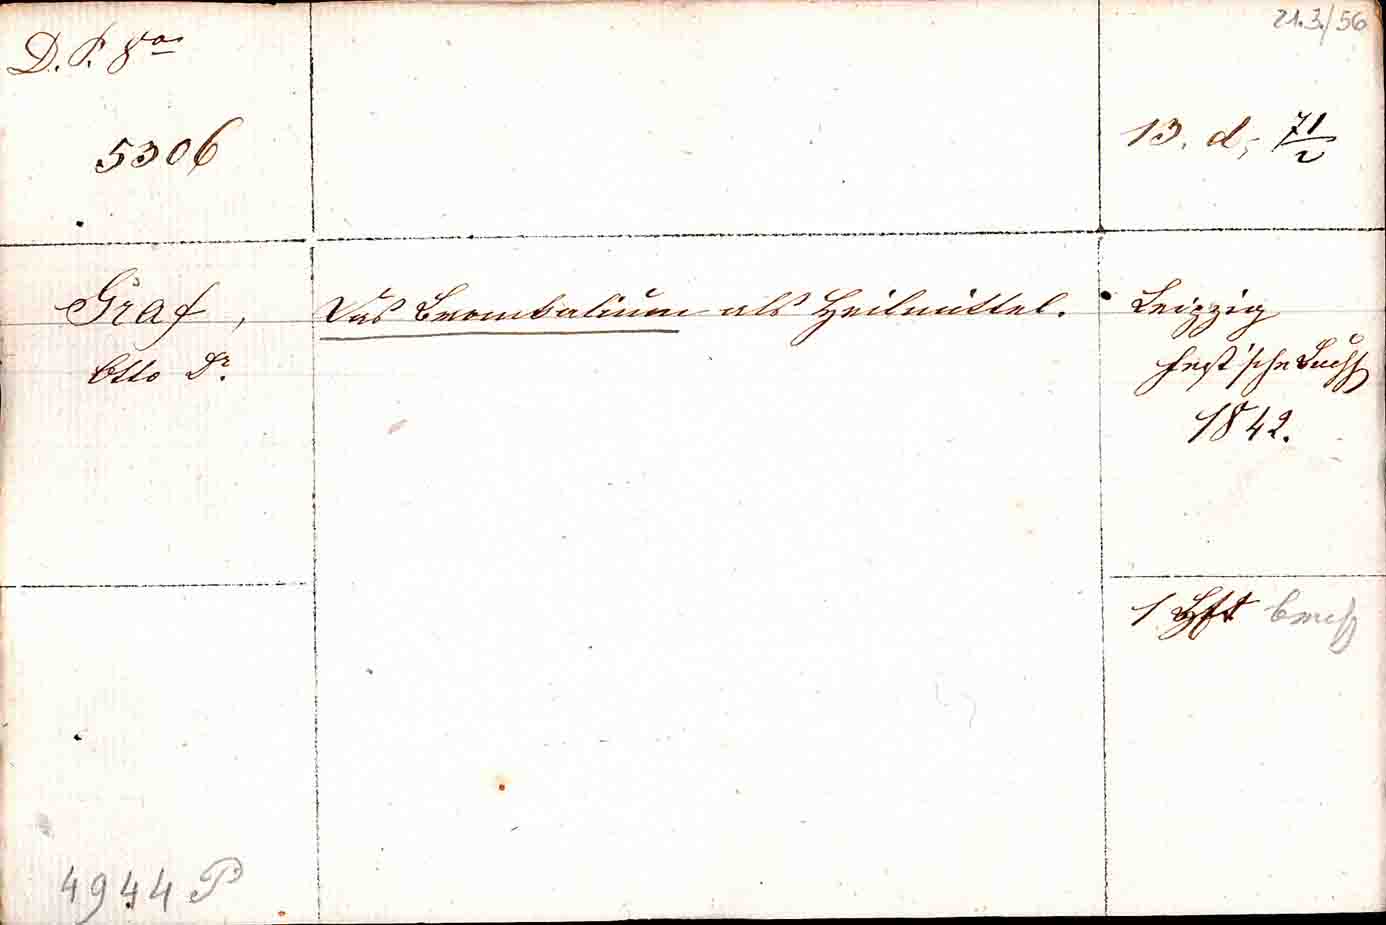 D. P. 8°
21.3./56
5306
13. d, 71/2
Graf,
Otto Dr.
Das Bromkalium als Heilmittel.
Leipzig
Fest'sche Buchh
1842.
1 Hft
4944 P